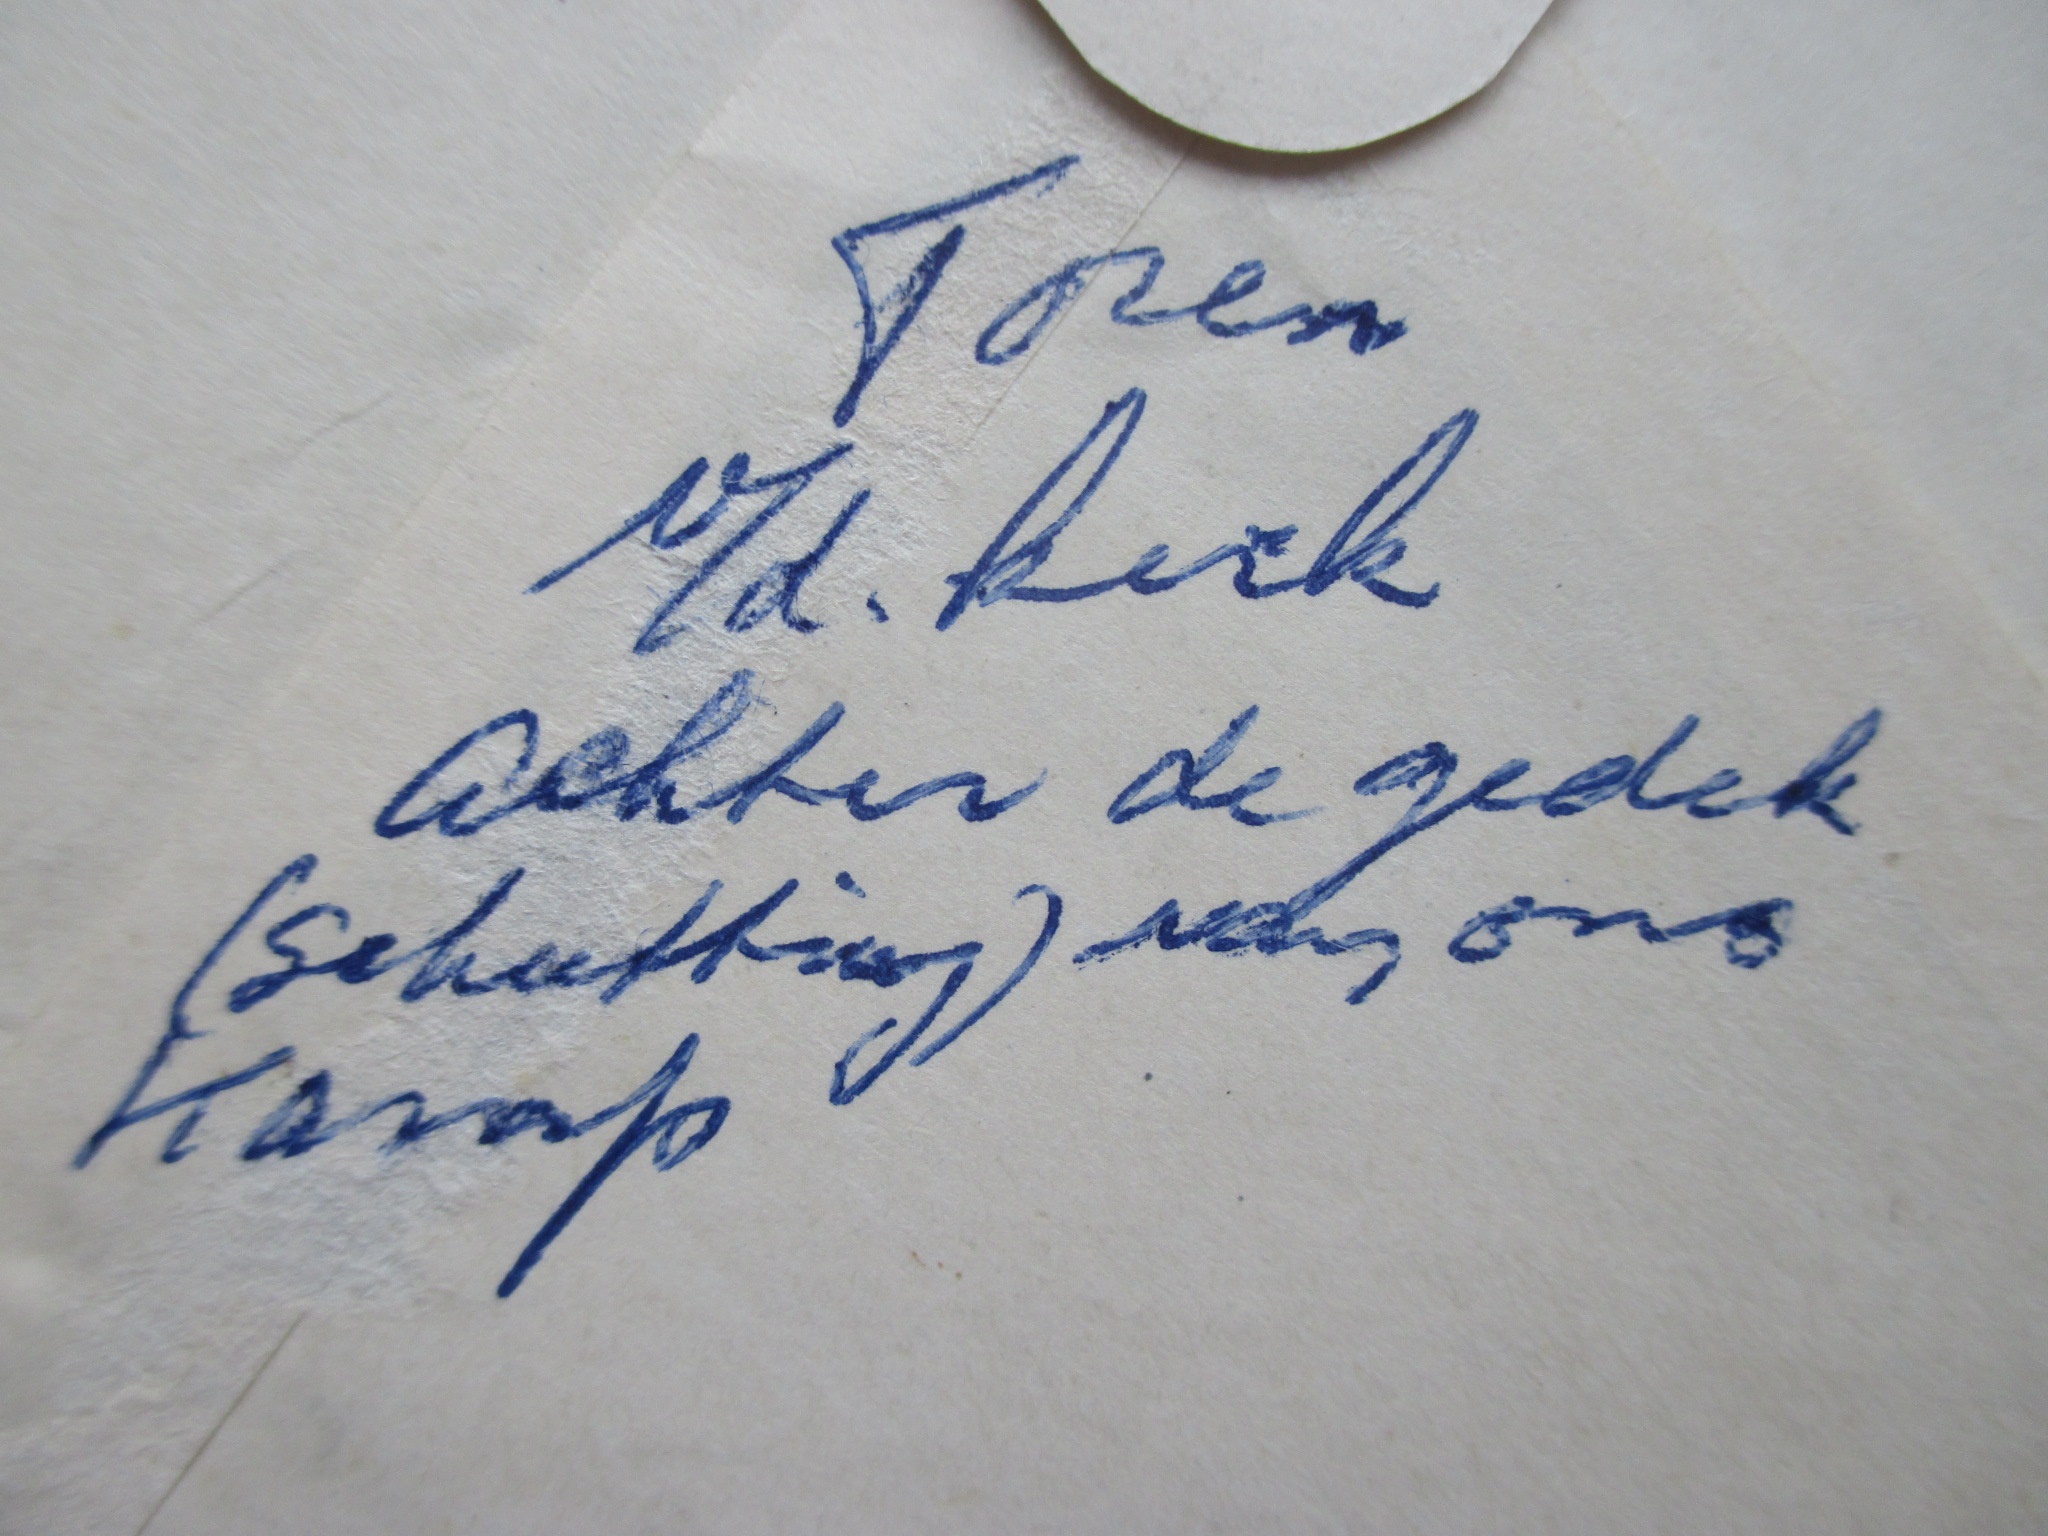 Toren
v/d. kerk
achter de gedek
(schutting) van ons
kamp